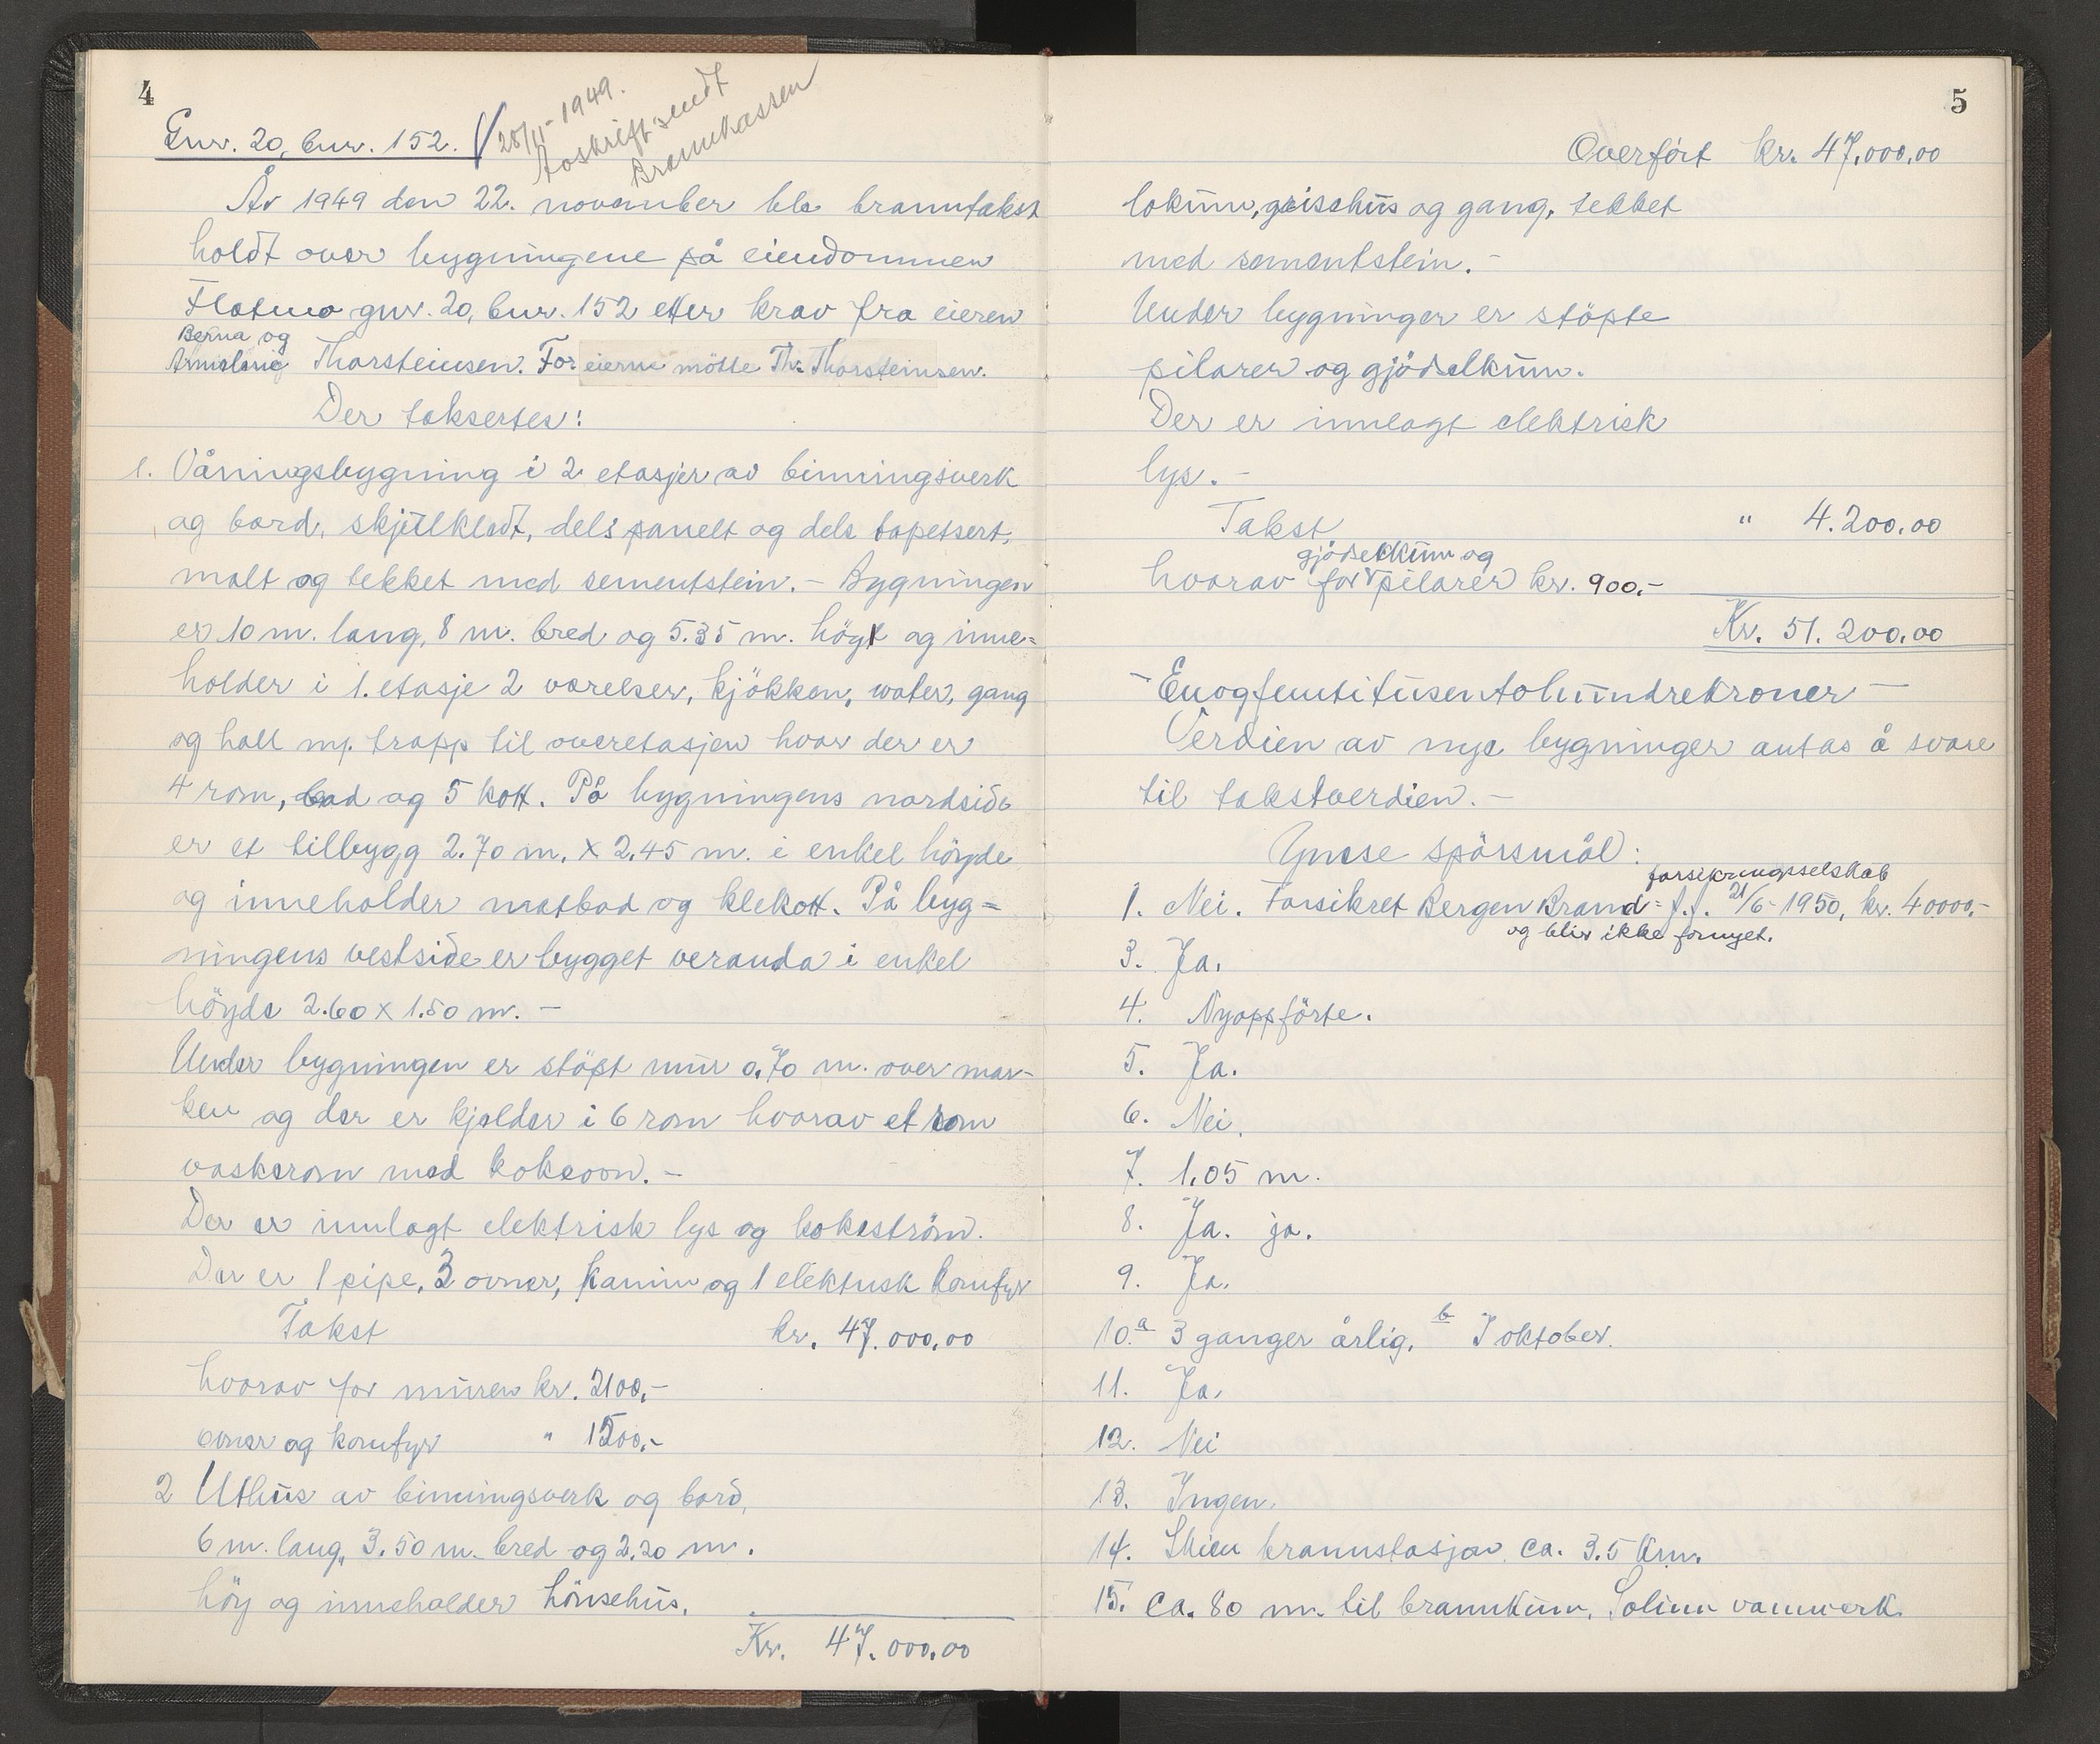 4
Gnr. 20, bnr. 152.
28/11-1949.
Avskrift sendt
Brannkassen
År 1949 den 22. november ble branntakst
holdt over bygningene på eiendommen
Flatmo gnr. 20, bnr. 152 etter krav fra eieren
Berna og
Thorsteinsen. For eierne møtte Th. Thorsteinsen.
Der taksertes:
1. Våningsbygning i 2 etasjer av binningsverk
og bord, skjulkledt, dels panelt og dels tapetsert,
malt og tekket med sementstein. - Bygningen
er 10 m. lang, 8 m. bred og 5.35 m. høy og inne=
holder i 1. etasje 2 værelser, kjökken, water, gang
og hall m/. trapp til overetasjen hvor der er
4 rom, bad og 5 kott. På bygningens nordside
er et tilbygg 2.70 m. x 2.45 m. i enkel høyde
og inneholder matbod og klekott. På byg=
ningens vestside er bygget veranda i enkel
höyde 2.60 x 1.50 m. -
Under bygningen er stöpt mur 0.70 m. over mar-
ken og der er kjelder i 6 rom hvorav et rom
vaskerom med kokeovn. -
Der er innlagt elektrisk lys og kokeström.
Der er 1 pipe, 3 ovner, kamin og 1 elektrisk komfyr
Takst kr. 47.000,00
hvorav for muren kr. 2100,-
ovner og komfyr " 1500,-
2 Uthus av binningsverk og bord,
6 m. lang, 3.50 m. bred og 2.20 m.
höy og inneholder hönsehus,
Kr. 47.000,00
5
Overfört kr. 47.000,00
lokum, grisehus og gang, tekket
med sementstein. -
Under bygninger er stöpte
pilarer og gjödselkum.
Der er innlagt elektrisk
lys. -
Takst " 4.200,00
gjödselkum og
hvorav for pilarer kr. 900,-
Kr. 51.200,00
- Enogfemtitusentohundrekroner -
Verdien av nye bygninger antas å svare
til takstverdien. -
Ymse spörsmål:
forsikringsselskab
1. Nei. Forsikret Bergen Brand= f.f. 21/6-1950, kr. 40000,-
og blir ikke fornyet.
3. Ja.
4. Nyoppförte.
5. Ja.
6. Nei.
7. 1,05 m.
8. Ja. ja.
9. Ja.
10. a 3 ganger årlig. b I oktober.
11. Ja.
12. Nei
13. Ingen.
14. Skien brannstasjon ca. 3.5 km.
15. Ca. 80 m. til brannkum, Solum vannverk.